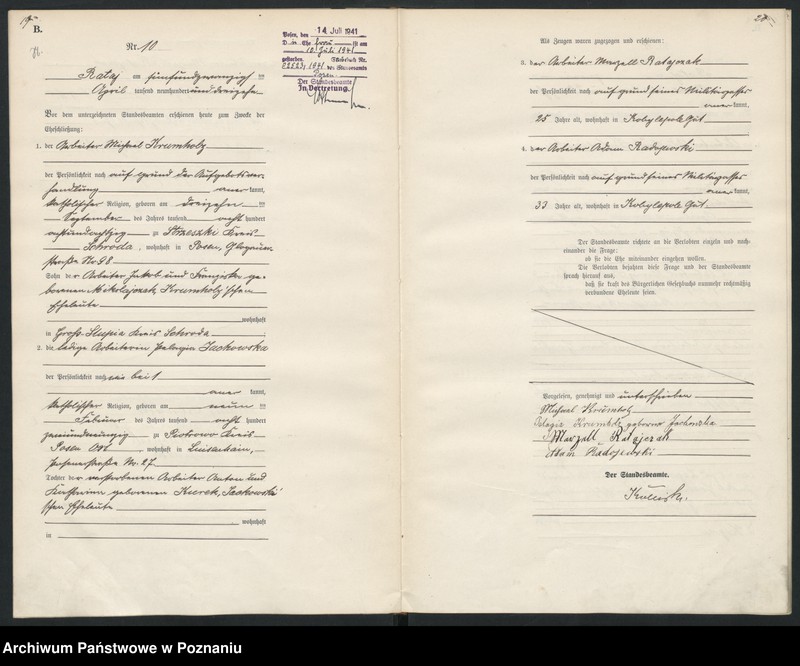 B.
Nr. 10
Posen, den 14. Juli 1941
Rataj am fünfundzwanzigsten
April tausend neunhundert und dreizehn
Vor dem unterzeichneten Standesbeamten erschienen heute zum Zwecke der
Eheschließung:
1. der Arbeiter Michael Krumholz
der Persönlichkeit nach auf Grund der Aufgebotsver-
handlung anerkannt,
katholischer Religion, geboren am dreizehnten
September des Jahres tausend acht hundert
achtundachtzig zu Strzeszki Kreis
Schroda, wohnhaft in Posen, Glogauer-
straße Nr. 98
Sohn der Arbeiter Jakob und Franziska ge-
borenen Mikolajczak, Krumholz'schen
Eheleute
wohnhaft
in Groß-Slupia Kreis Schroda
2. die ledige Arbeiterin Pelagia Jackowska
der Persönlichkeit nach wie bei 1
anerkannt,
katholischer Religion, geboren am neunten
Februar des Jahres tausend acht hundert
zweiundneunzig zu Piotrowo Kreis
Posen Ost, wohnhaft in Luisenhain,
Posenerstraße Nr. 27
Tochter der verstorbenen Arbeiter Anton und
Katharina geborenen Kurek, Jackowski'
schen Eheleute
wohnhaft
in
Die Ehe
ist am
10. Juli 1941
Posen
Der Standesbeamte
In Vertretung.
Als Zeugen waren zugezogen und erschienen:
3. der Arbeiter Marzell Ratajczak
der Persönlichkeit nach auf Grund seines Militärpasses
anerkannt,
25 Jahre alt, wohnhaft in Kobylepole Gut
4. der Arbeiter Adam Radojewski
der Persönlichkeit nach auf Grund seines Militärpasses
anerkannt,
33 Jahre alt, wohnhaft in Kobylepole Gut
Der Standesbeamte richtete an die Verlobten einzeln und nach-
einander die Frage:
ob sie die Ehe miteinander eingehen wollen.
Die Verlobten bejahten diese Frage und der Standesbeamte
sprach hierauf aus,
daß sie kraft des Bürgerlichen Gesetzbuchs nunmehr rechtmäßig
verbundene Eheleute seien.
Vorgelesen, genehmigt und unterschrieben
Michael Krumholz
Pelagia Krumholz geborene Jackowska
Marzell Ratajczak
Adam Radojewski
Der Standesbeamte.
Archiwum Państwowe w Poznaniu